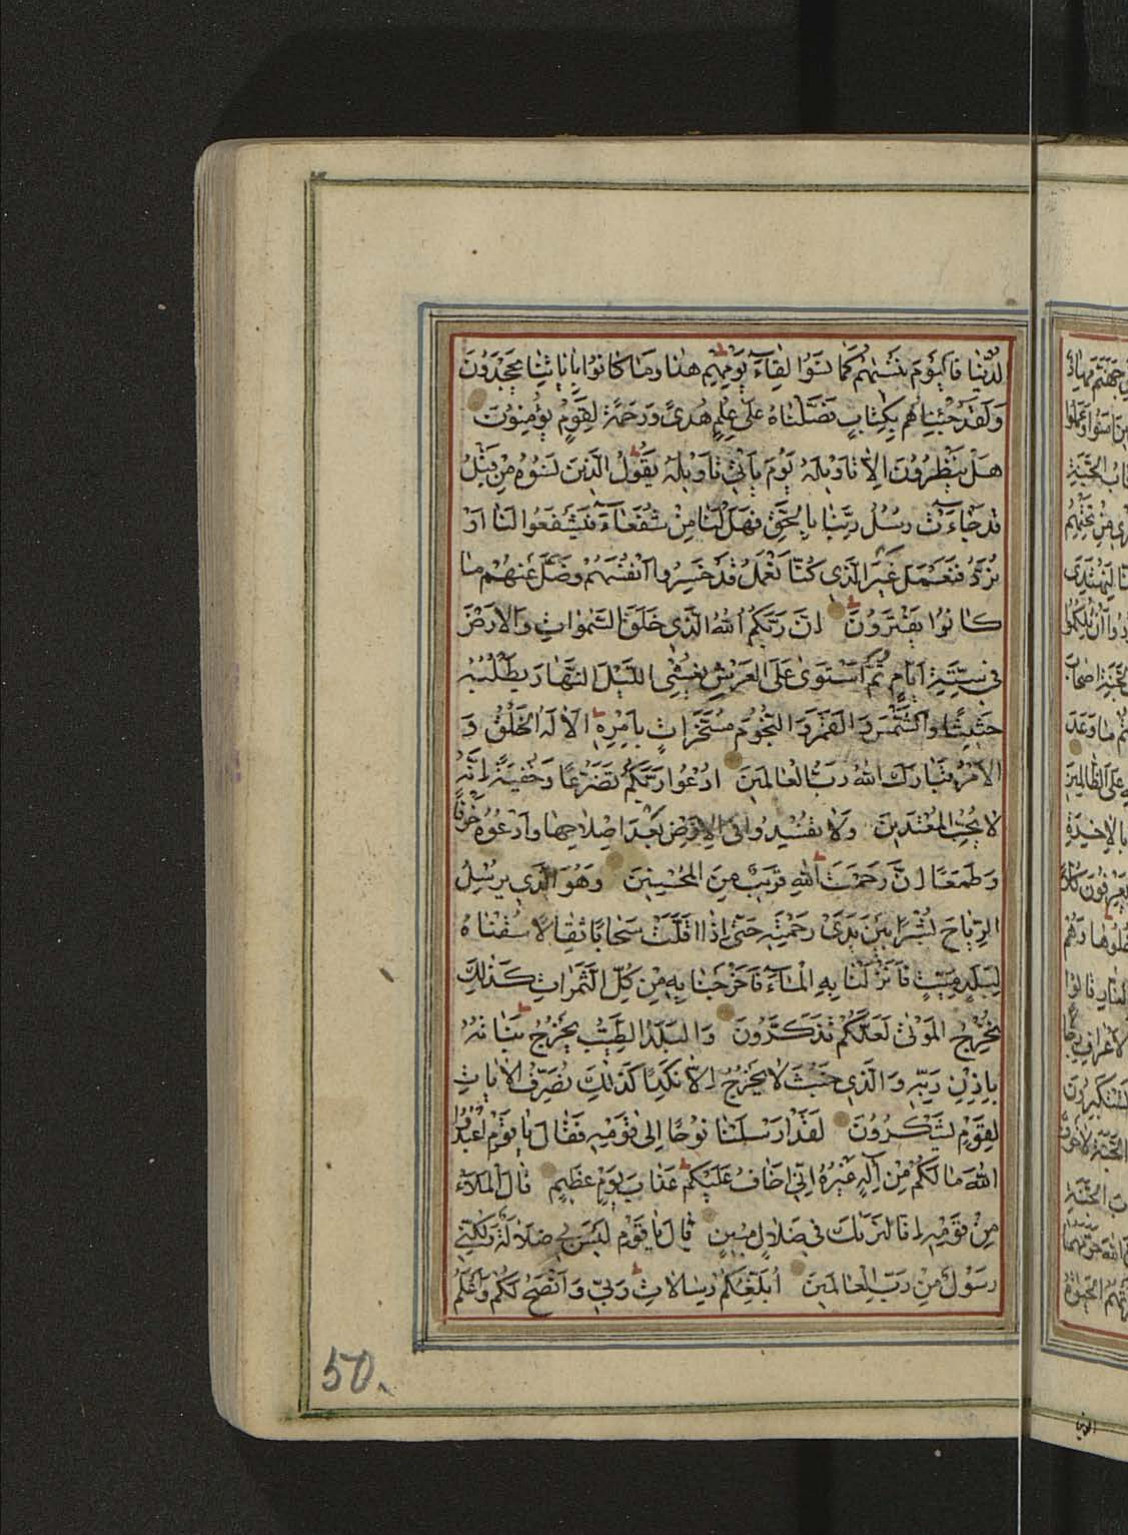 لدُّنْيَا فَالْيَوْمَ نَنْسٰيهُمْ كَمَا نَسُوا لِقَاءَ يَوْمِهِمْ هٰذَا وَمَا كَانُوا بِاٰيَاتِنَا يَجْحَدُونَ
وَلَقَدْ جِئْنَاهُمْ بِكِتَابٍ فَصَّلْنَاهُ عَلٰى عِلْمٍ هُدىً وَرَحْمَةً لِقَوْمٍ يُؤْمِنُونَ
هَلْ يَنْظُرُونَ اِلَّا تَاْوِيلَهُ يَوْمَ يَاْتِي تَاْوِيلُهُ يَقُولُ الَّذِينَ نَسُوهُ مِنْ قَبْلُ
قَدْ جَاءَتْ رُسُلُ رَبِّنَا بِالْحَقِّ فَهَلْ لَنَا مِنْ شُفَعَاءَ فَيَشْفَعُوا لَنَا اَوْ
نُرَدُّ فَنَعْمَلَ غَيْرَ الَّذِي كُنَّا نَعْمَلُ قَدْ خَسِرُوا اَنْفُسَهُمْ وَضَلَّ عَنْهُمْ مَا
كَانُوا يَفْتَرُونَ اِنَّ رَبَّكُمُ اللّٰهُ الَّذِي خَلَقَ السَّمٰوَاتِ وَالْاَرْضَ
فِي سِتَّةِ اَيَّامٍ ثُمَّ اسْتَوٰى عَلَى الْعَرْشِ يُغْشِي اللَّيْلَ النَّهَارَ يَطْلُبُهُ
حَثِيثًا وَالشَّمْسَ وَالْقَمَرَ وَالنُّجُومَ مُسَخَّرَاتٍ بِاَمْرِهِ اَلَا لَهُ الْخَلْقُ وَ
الْاَمْرُ تَبَارَكَ اللّٰهُ رَبُّ الْعَالَمِينَ اُدْعُوا رَبَّكُمْ تَضَرُّعًا وَخُفْيَةً اِنَّهُ
لَا يُحِبُّ الْمُعْتَدِينَ وَلَا تُفْسِدُوا فِي الْاَرْضِ بَعْدَ اِصْلَاحِهَا وَادْعُوهُ خَوْفًا
وَطَمَعًا اِنَّ رَحْمَتَ اللّٰهِ قَرِيبٌ مِنَ الْمُحْسِنِينَ وَهُوَ الَّذِي يُرْسِلُ
الرِّيَاحَ بُشْرًا بَيْنَ يَدَيْ رَحْمَتِهِ حَتّٰى اِذَا اَقَلَّتْ سَحَابًا ثِقَالًا سُقْنَاهُ
لِبَلَدٍ مَيِّتٍ فَاَنْزَلْنَا بِهِ الْمَاءَ فَاَخْرَجْنَا بِهِ مِنْ كُلِّ الثَّمَرَاتِ كَذٰلِكَ
نُخْرِجُ الْمَوْتٰى لَعَلَّكُمْ تَذَكَّرُونَ وَالْبَلَدُ الطَّيِّبُ يَخْرُجُ نَبَاتُهُ
بِاِذْنِ رَبِّهِ وَالَّذِي خَبُثَ لَا يَخْرُجُ اِلَّا نَكِدًا كَذٰلِكَ نُصَرِّفُ الْاٰيَاتِ
لِقَوْمٍ يَشْكُرُونَ لَقَدْ اَرْسَلْنَا نُوحًا اِلٰى قَوْمِهِ فَقَالَ يَا قَوْمِ اعْبُدُوا
اللّٰهَ مَا لَكُمْ مِنْ اِلٰهٍ غَيْرُهُ اِنِّي اَخَافُ عَلَيْكُمْ عَذَابَ يَوْمٍ عَظِيمٍ قَالَ الْمَلَاُ
مِنْ قَوْمِهِ اِنَّا لَنَرٰيكَ فِي ضَلَالٍ مُبِينٍ قَالَ يَا قَوْمِ لَيْسَ بِي ضَلَالَةٌ وَلٰكِنِّي
رَسُولٌ مِنْ رَبِّ الْعَالَمِينَ اُبَلِّغُكُمْ رِسَالَاتِ رَبِّي وَاَنْصَحُ لَكُمْ وَاَعْلَمُ
50.